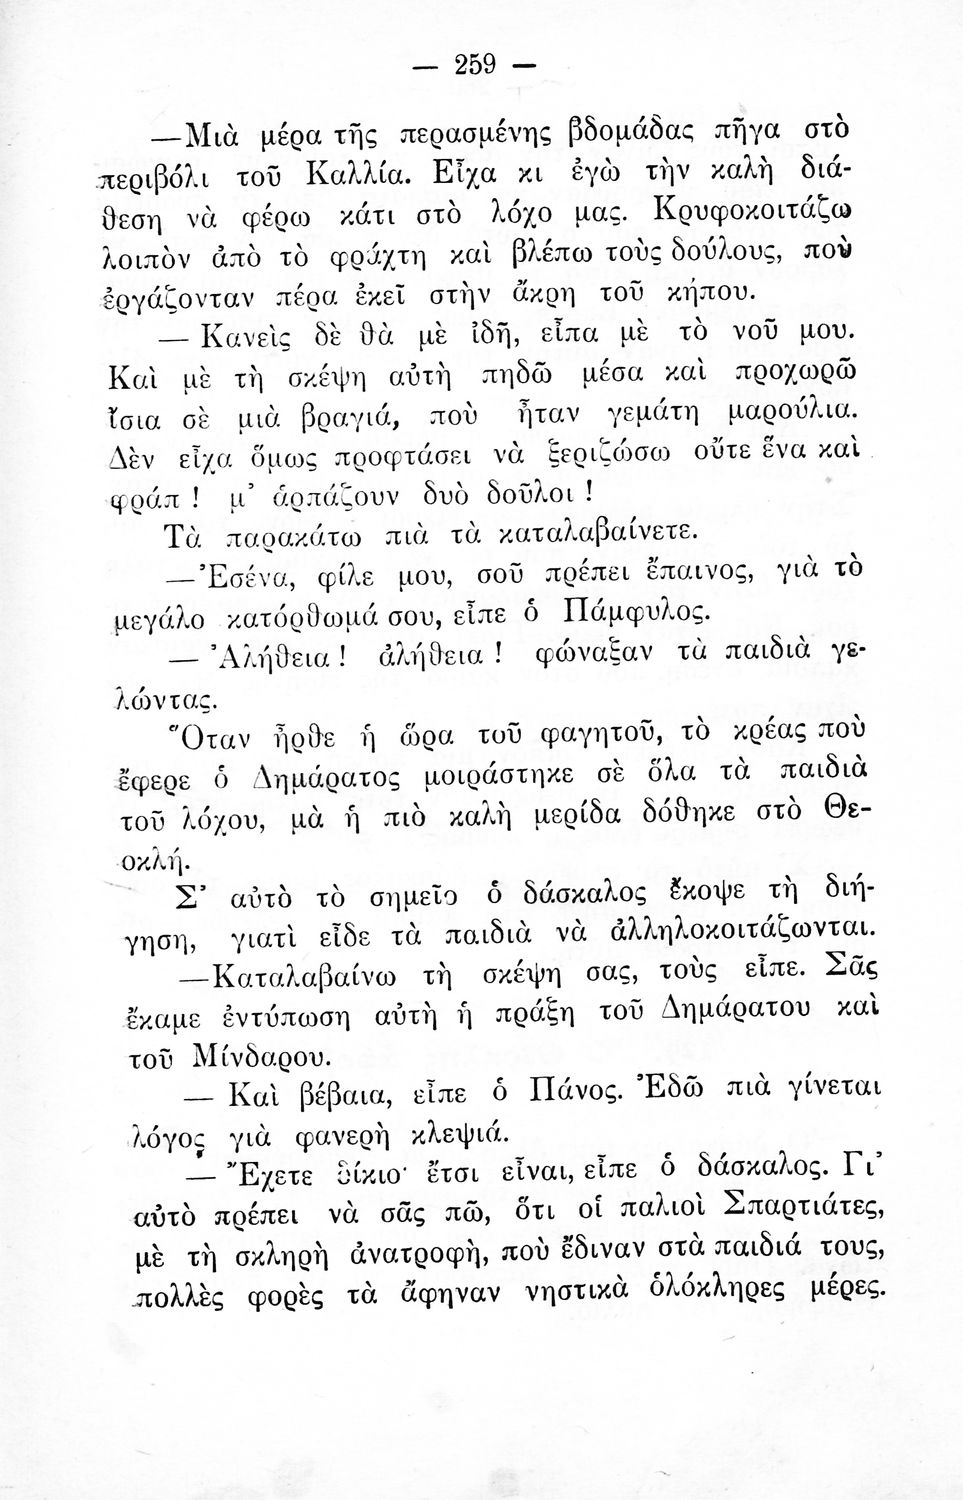 — 259 —
—Μιὰ μέρα τῆς περασμένης βδομάδας πῆγα στὸ
περιβόλι τοῦ Καλλία. Εἶχα κι ἐγὼ τὴν καλὴ διά-
θεση νὰ φέρω κάτι στὸ λόχο μας. Κρυφοκοιτάζω
λοιπὸν ἀπὸ τὸ φράχτη καὶ βλέπω τοὺς δούλους, ποὺ
ἐργάζονταν πέρα ἐκεῖ στὴν ἄκρη τοῦ κήπου.
— Κανεὶς δὲ θὰ μὲ ἰδῆ, εἶπα μὲ τὸ νοῦ μου.
Καὶ μὲ τὴ σκέψη αὐτὴ πηδῶ μέσα καὶ προχωρῶ
ἴσια σὲ μιὰ βραγιά, ποὺ ἦταν γεμάτη μαρούλια.
Δὲν εἶχα ὅμως προφτάσει νὰ ξεριζώσω οὔτε ἕνα καὶ
φράπ ! μ' ἁρπάζουν δυὸ δοῦλοι !
Τὰ παρακάτω πιὰ τὰ καταλαβαίνετε.
—Ἐσένα, φίλε μου, σοῦ πρέπει ἔπαινος, γιὰ τὸ
μεγάλο κατόρθωμά σου, εἶπε ὁ Πάμφυλος.
— Ἀλήθεια ! ἀλήθεια ! φώναξαν τὰ παιδιὰ γε-
λώντας.
Ὅταν ἦρθε ἡ ὥρα τοῦ φαγητοῦ, τὸ κρέας ποὺ
ἔφερε ὁ Δημάρατος μοιράστηκε σὲ ὅλα τὰ παιδιὰ
τοῦ λόχου, μὰ ἡ πιὸ καλὴ μερίδα δόθηκε στὸ Θε-
οκλή.
Σ' αὐτὸ τὸ σημεῖο ὁ δάσκαλος ἔκοψε τὴ διή-
γηση, γιατὶ εἶδε τὰ παιδιὰ νὰ ἀλληλοκοιτάζωνται.
—Καταλαβαίνω τὴ σκέψη σας, τοὺς εἶπε. Σᾶς
ἔκαμε ἐντύπωση αὐτὴ ἡ πράξη τοῦ Δημάρατου καὶ
τοῦ Μίνδαρου.
— Καὶ βέβαια, εἶπε ὁ Πάνος. Ἐδῶ πιὰ γίνεται
λόγος γιὰ φανερὴ κλεψιά.
— Ἔχετε δίκιο· ἔτσι εἶναι, εἶπε ὁ δάσκαλος. Γι'
αὐτὸ πρέπει νὰ σᾶς πῶ, ὅτι οἱ παλιοὶ Σπαρτιάτες,
μὲ τὴ σκληρὴ ἀνατροφή, ποὺ ἔδιναν στὰ παιδιά τους,
πολλὲς φορὲς τὰ ἄφηναν νηστικὰ ὁλόκληρες μέρες.